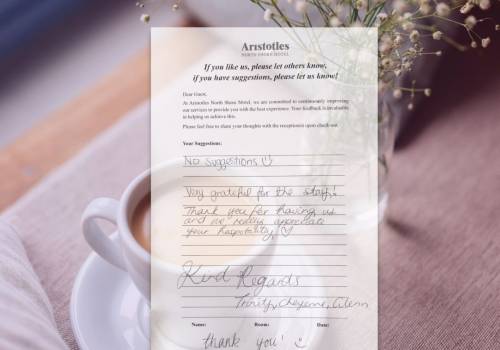 Aristotles
NORTH SHORE MOTEL
If you like us, please let others know,
if you have suggestions, please let us know!
Dear Guest,
At Aristotles North Shore Motel, we are committed to continuously improving
our services to provide you with the best experience. Your feedback is invaluable
in helping us achieve this.
Please feel free to share your thoughts with the receptionist upon checkout.
Your Suggestions:
No suggestions
Very grateful for the staff!
Thank you for having us
and we really appreciate
your hospitality
Kind Regards
Trinity, Cheyenne, Glenn
Name: Room: Date:
thank you!